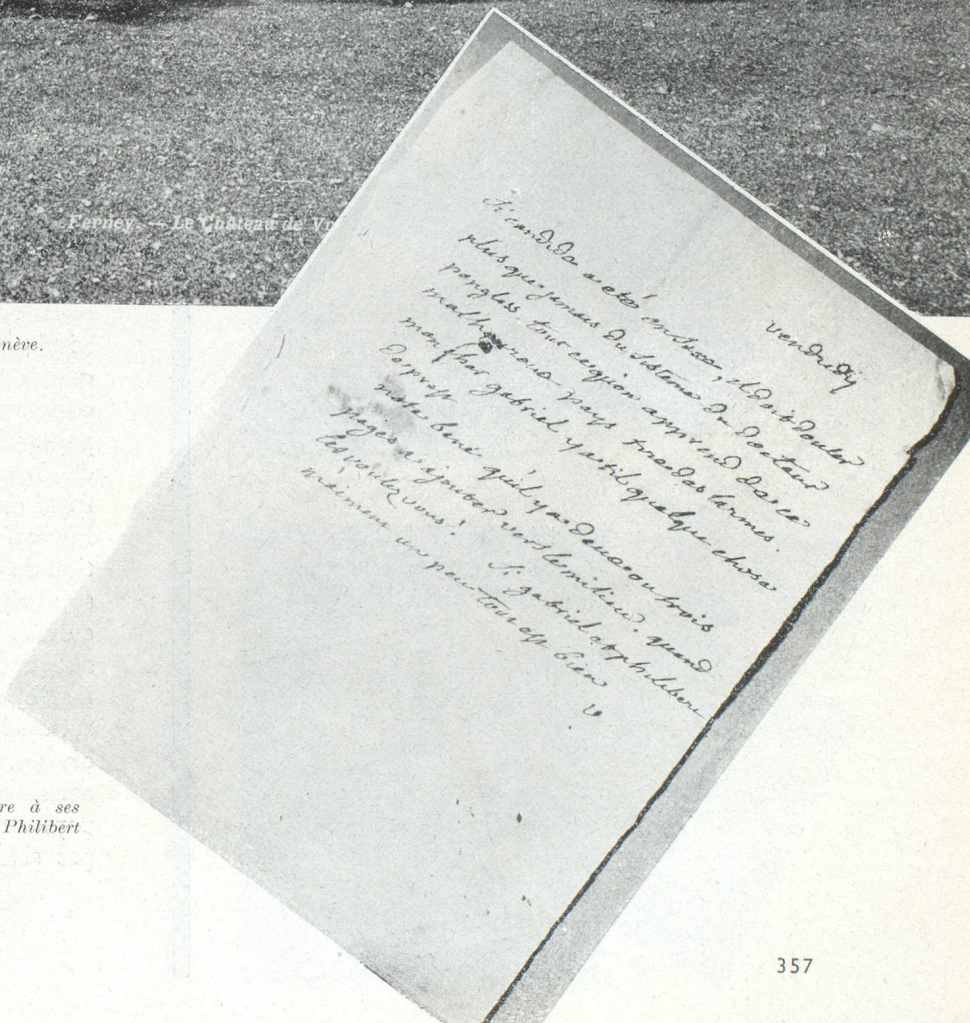 Ferney. — Le Château de Vo
nève.
vendredy
Si candide a eté en Suxe, il doit douter
plus que jamais du sisteme du docteur
pangloss. tout ce qu'on apprend de ce
malheureux pays tire des larmes.
mon cher gabriel y a t'il quelque chose
de prest
nota bene qu'il y a deux ou trois
pages a ajouter vers le milieu. quand
les voulez vous? Si gabriel et philibert
m'aiment un peu tout est bien
V
re à ses
Philibert
357